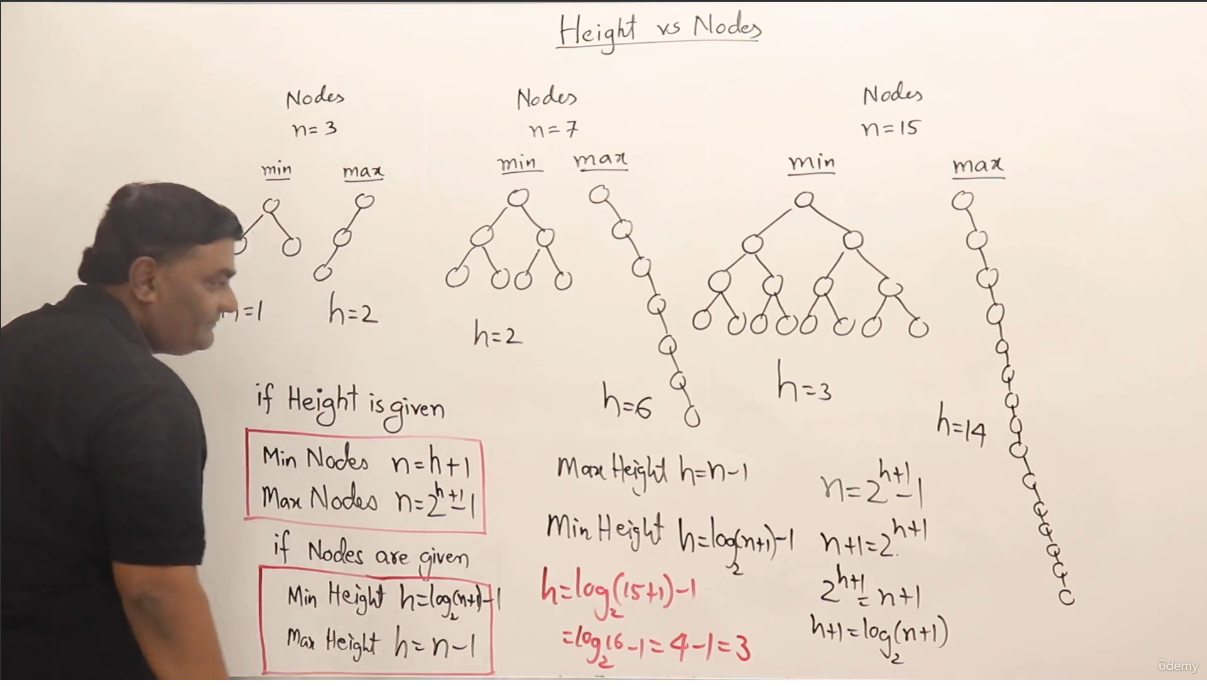 Height vs Nodes
Nodes
n=3
min
max
h=1
h=2
Nodes
n=7
min
max
h=2
h=6
Nodes
n=15
min
max
h=3
h=14
if Height is given
Min Nodes n=h+1
Max Nodes n=2^(h+1)-1
if Nodes are given
Min Height h=log₂(n+1)-1
Max Height h=n-1
Max Height h=n-1
Min Height h=log₂(n+1)-1
h=log₂(15+1)-1
=log₂16-1=4-1=3
n=2^(h+1)-1
n+1=2^(h+1)
2^(h+1)=n+1
h+1=log₂(n+1)
ûdemy